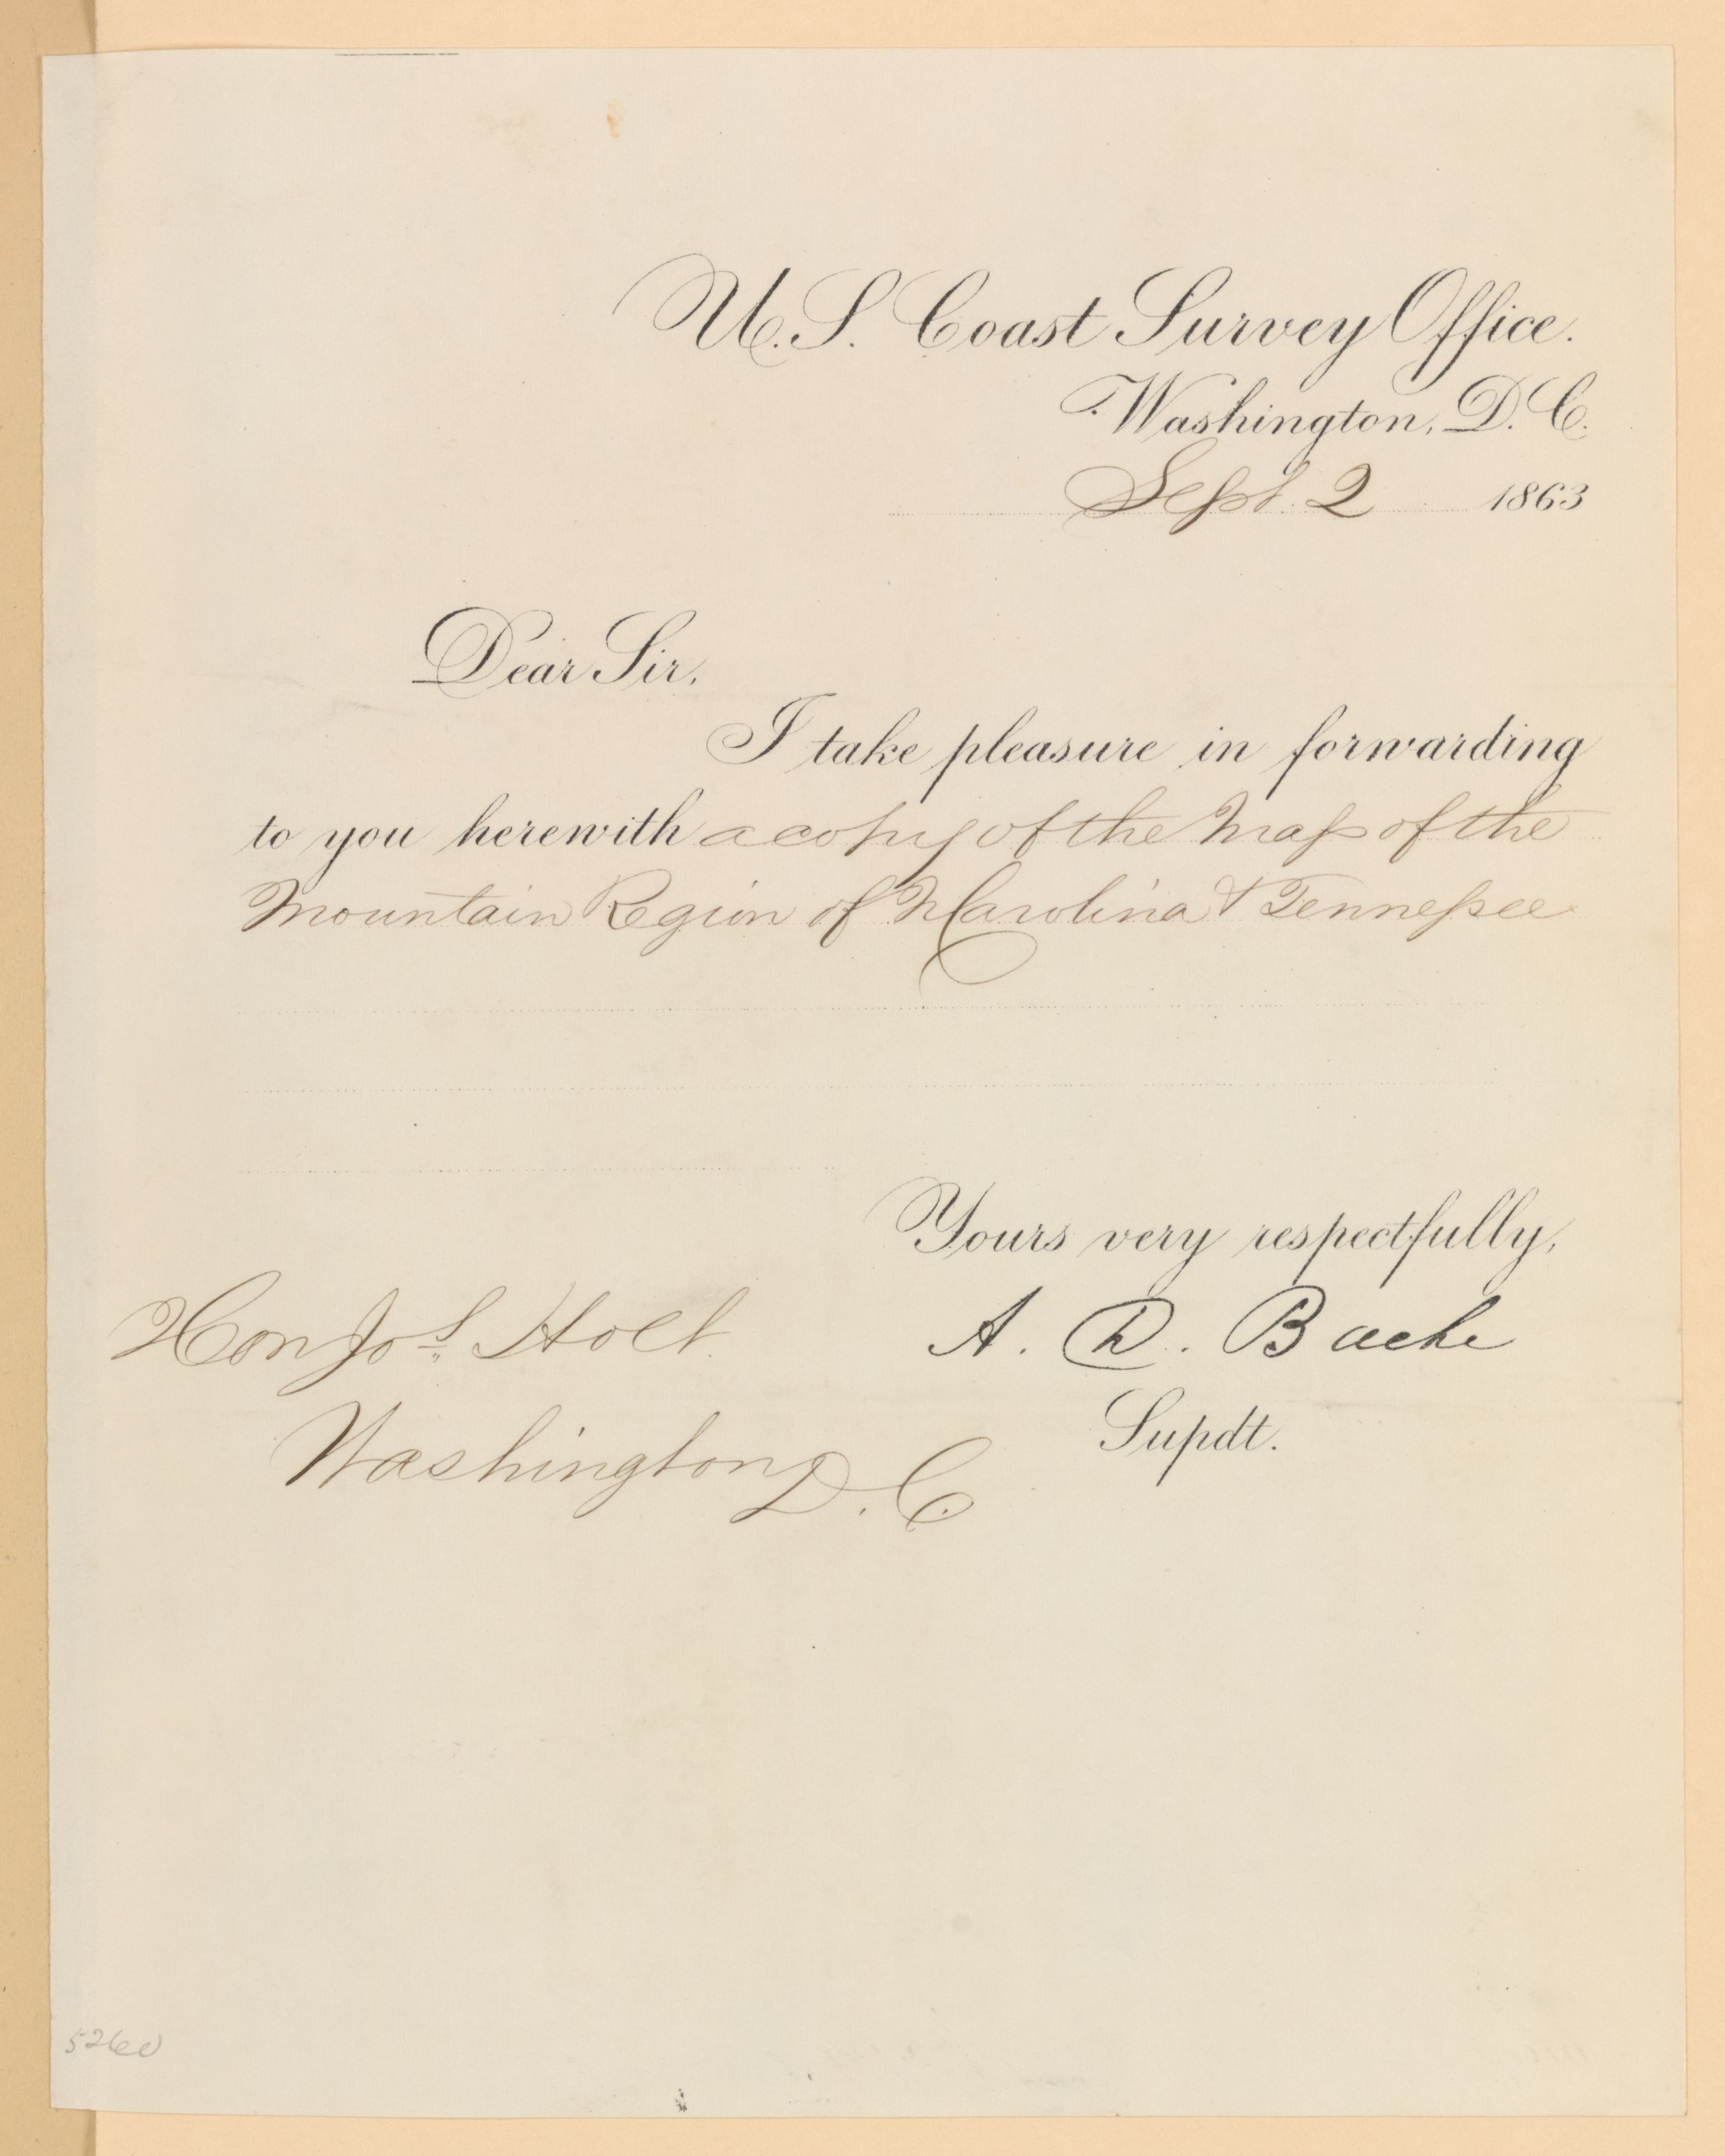 U.S. Coast Survey Office.
Washington, D.C.
Sept. 2 1863
Dear Sir,
I take pleasure in forwarding
to you herewith a copy of the Map of the
Mountain Region of N Carolina & Tennessee
Yours very respectfully,
Hon Jos Holt
A. D. Bache
Supdt.
Washington D.C.
5260